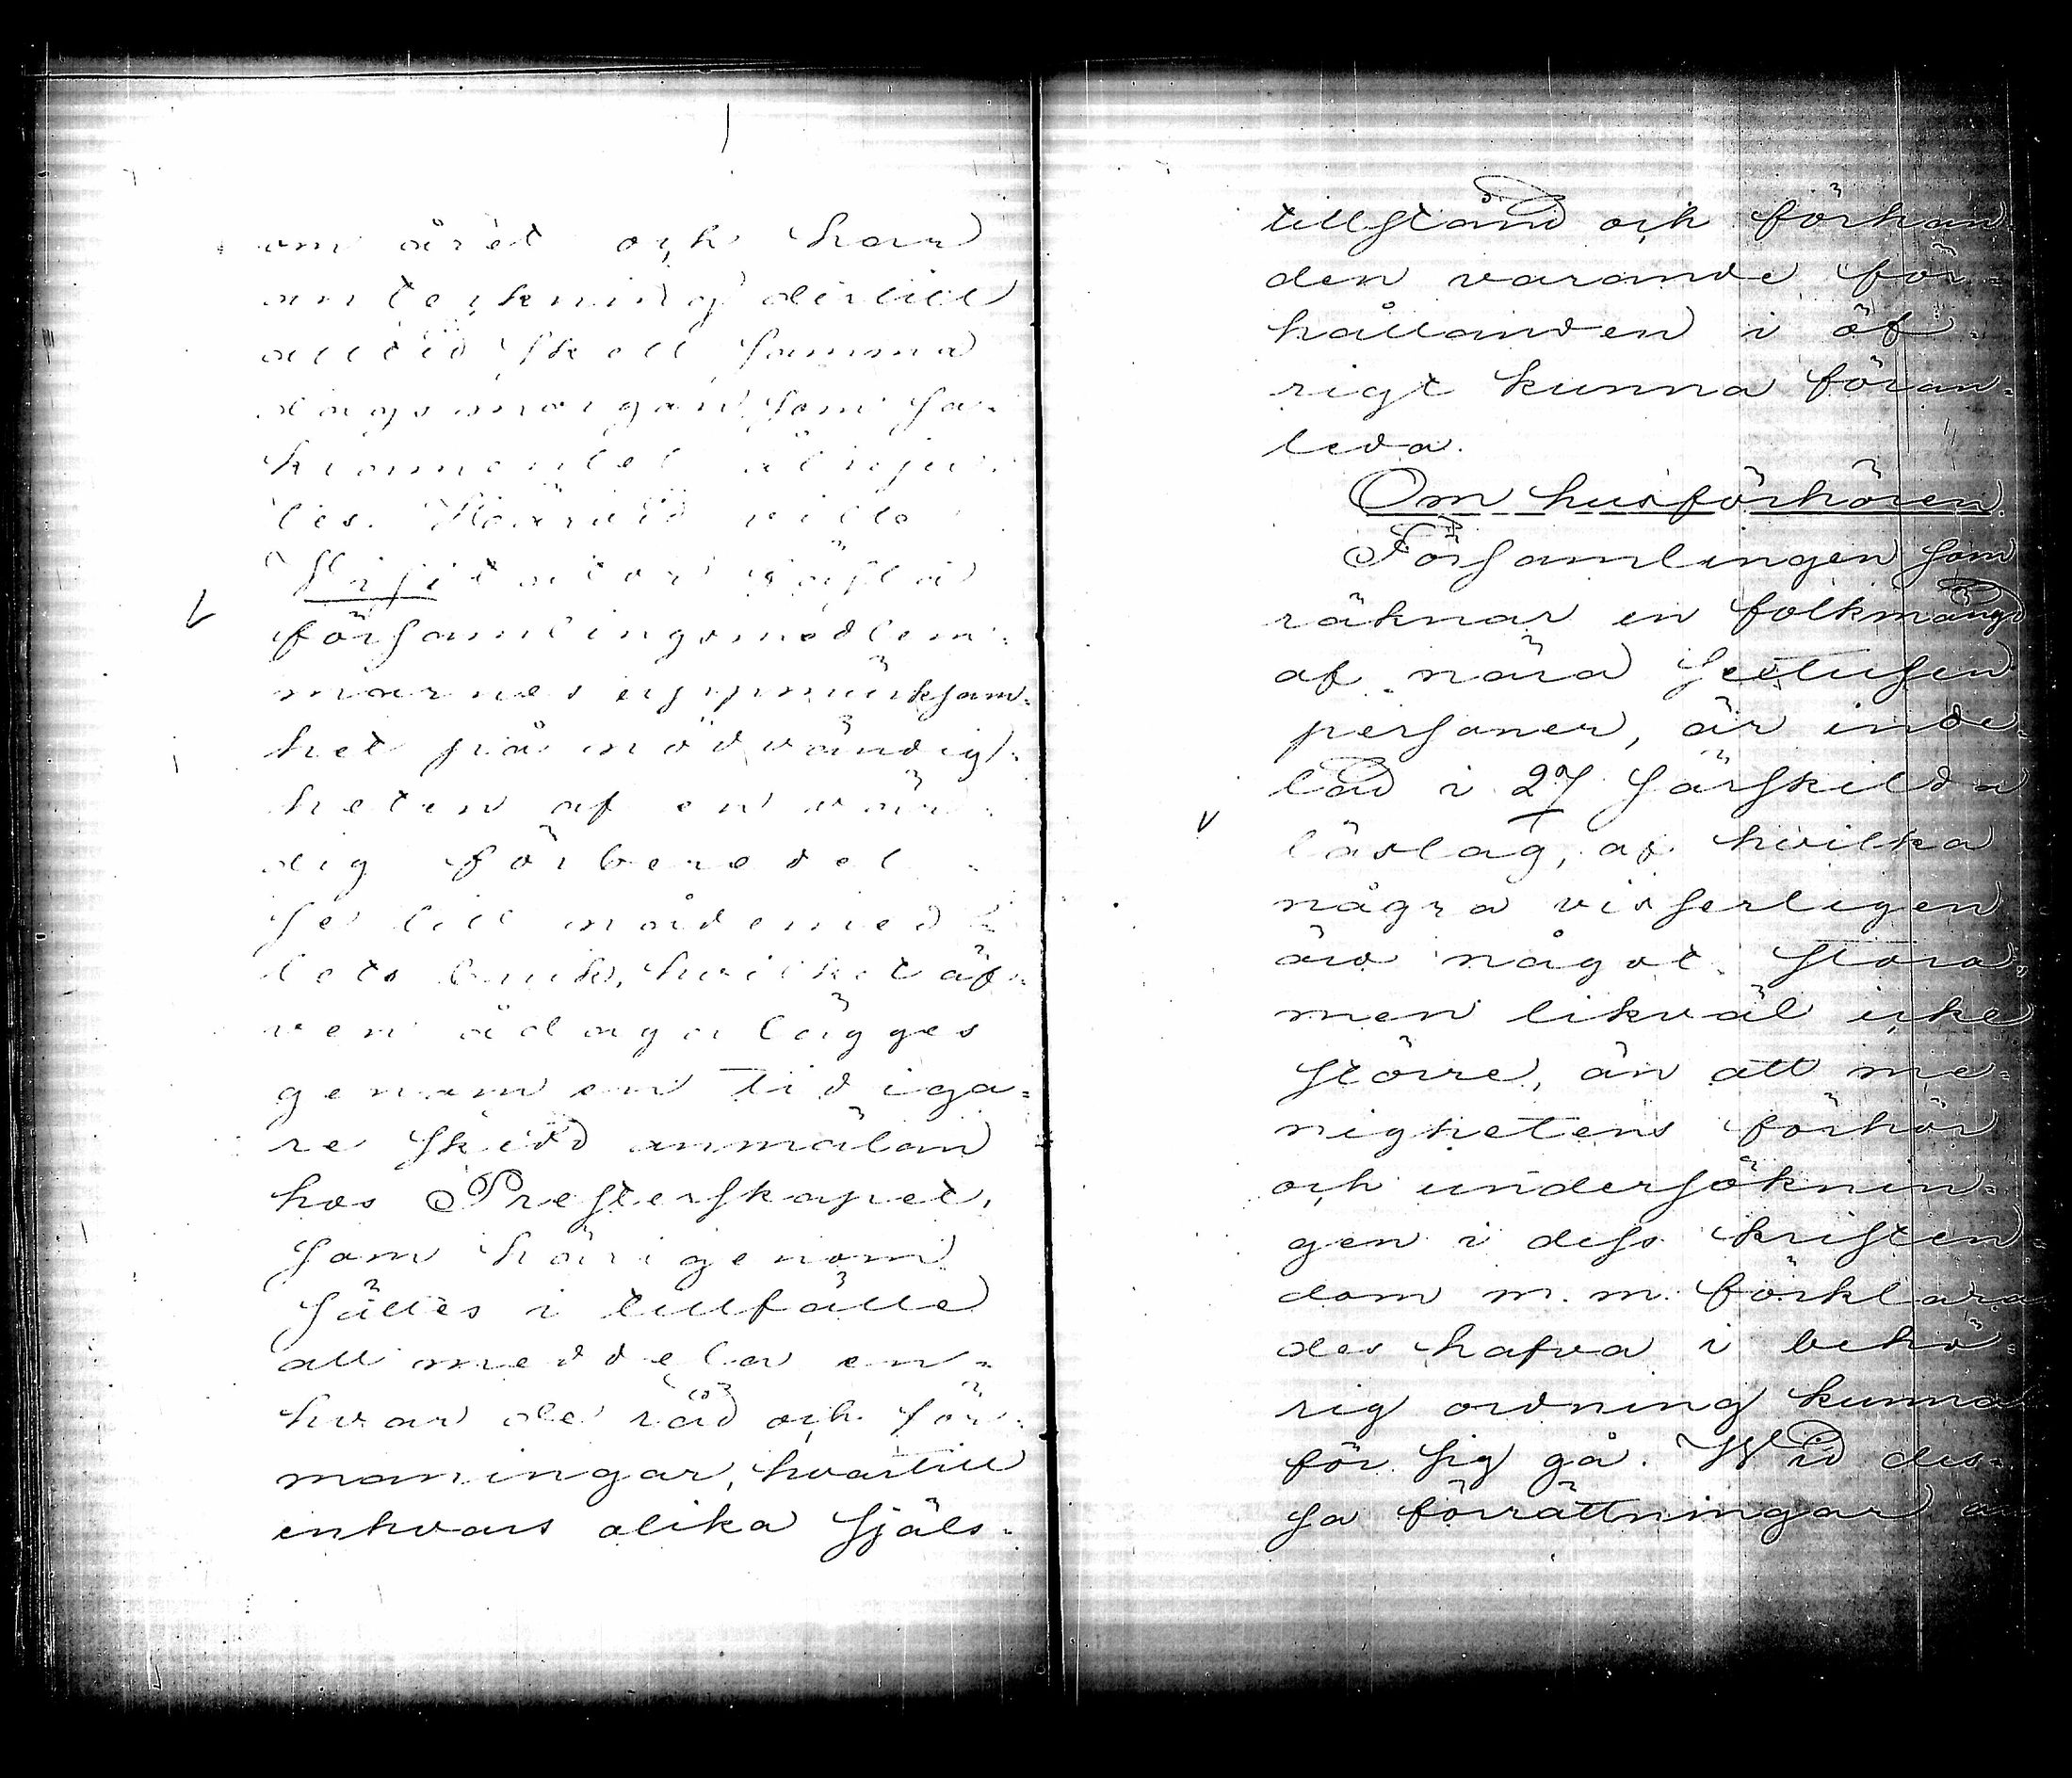 om året och har
anteckning dertill
alltid skett samma
dagsmorgon som sa-
kramentet åtnju-
tes. Härvid ville
Visitator fästa
församlingsmedlem-
marnes uppmärksam-
het på nödvändig-
heten af en vär-
dig förberedel-
se till nådemed-
lets bruk, hvilket äf-
ven ådagalägges
genom en tidiga-
re skedd anmälan
hos Presterskapet,
som härigenom
sättes i tillfälle
att meddela en-
hvar de råd och för-
maningar, hvartill
enhvars olika själs-
tillstånd och förhan-
den varande för-
hållanden i öf-
rigt kunna föran-
leda.
Om husförhören.
Församlingen som
räknar en folkmängd
af nära sextusen
personer, är inde-
lad i 27 särskilda
läslag, af hvilka
några visserligen
äro något stora,
men likväl icke
större, än att me-
nighetens förhör
och undersöknin-
gen i dess kristen-
dom m. m. förklara-
des hafva i behö-
rig ordning kunna
för sig gå. Wid des-
sa förrättningar